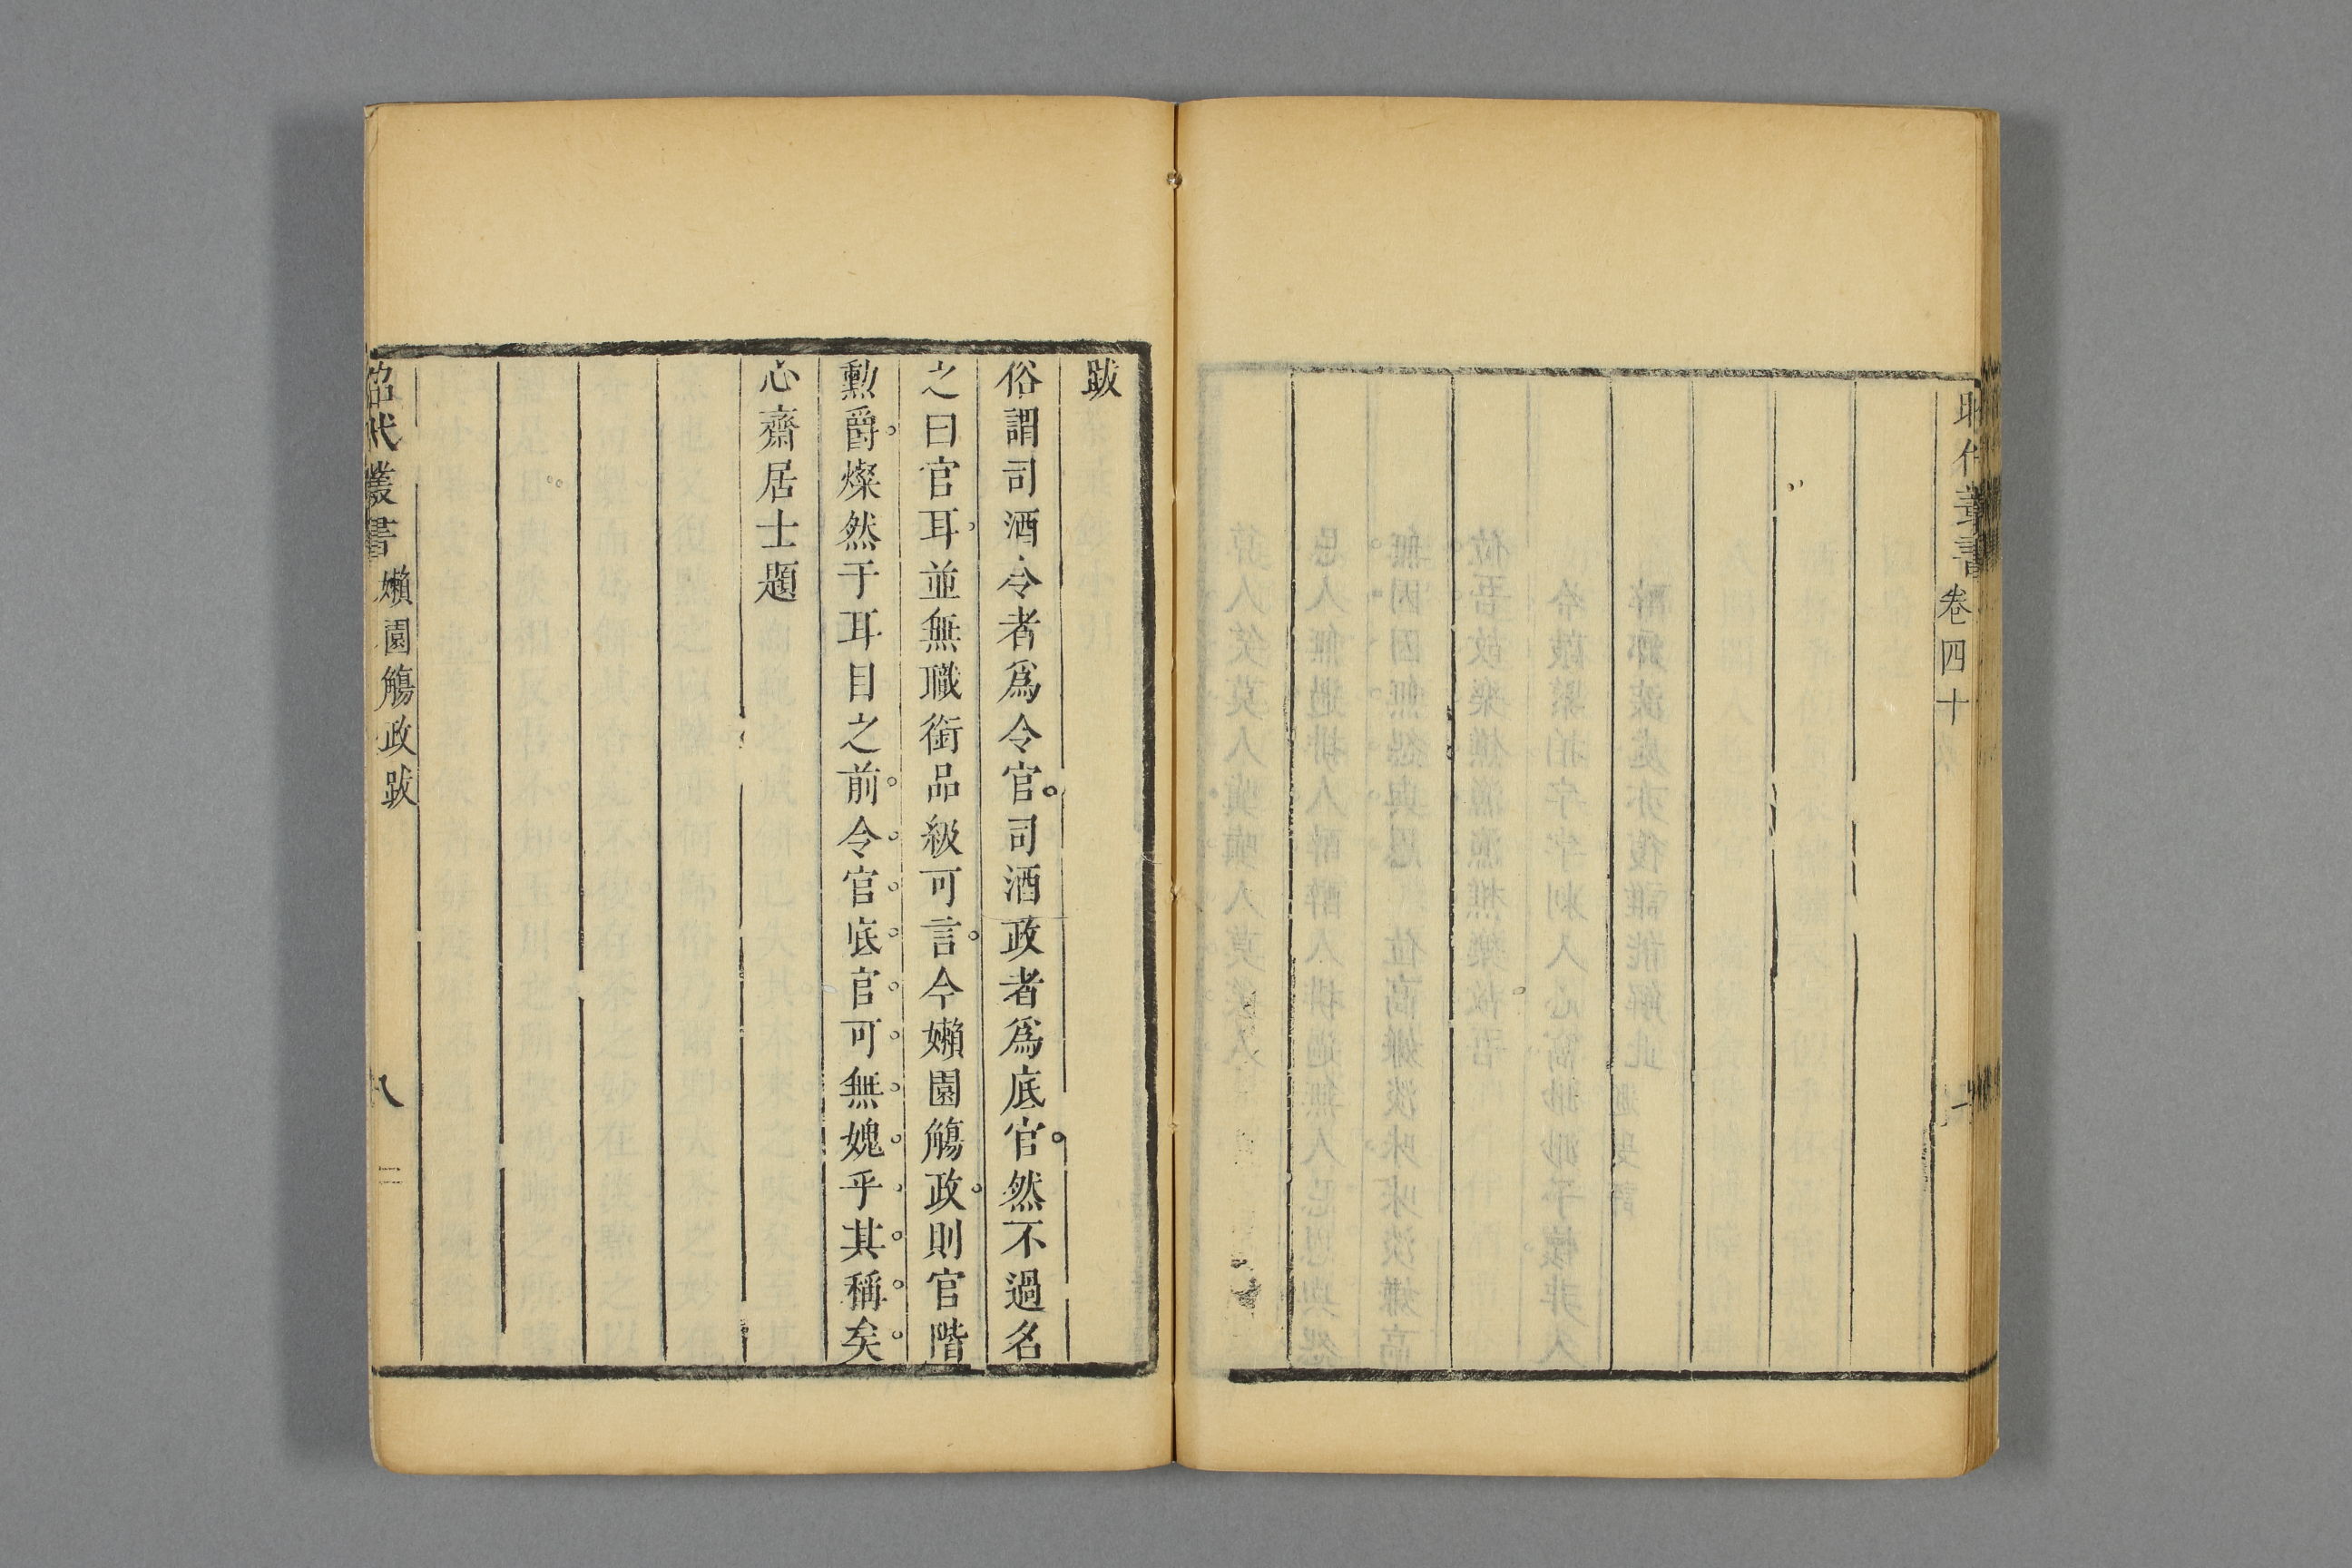 昭代叢書
卷四十
跋
俗謂司酒令者爲令官司酒政者爲底官然不過名
之曰官耳並無職銜品級可言今嬾園觴政則官階
勳爵燦然于耳目之前令官底官可無媿乎其稱矣
心齋居士題
昭代叢書
嬾園觴政跋
八